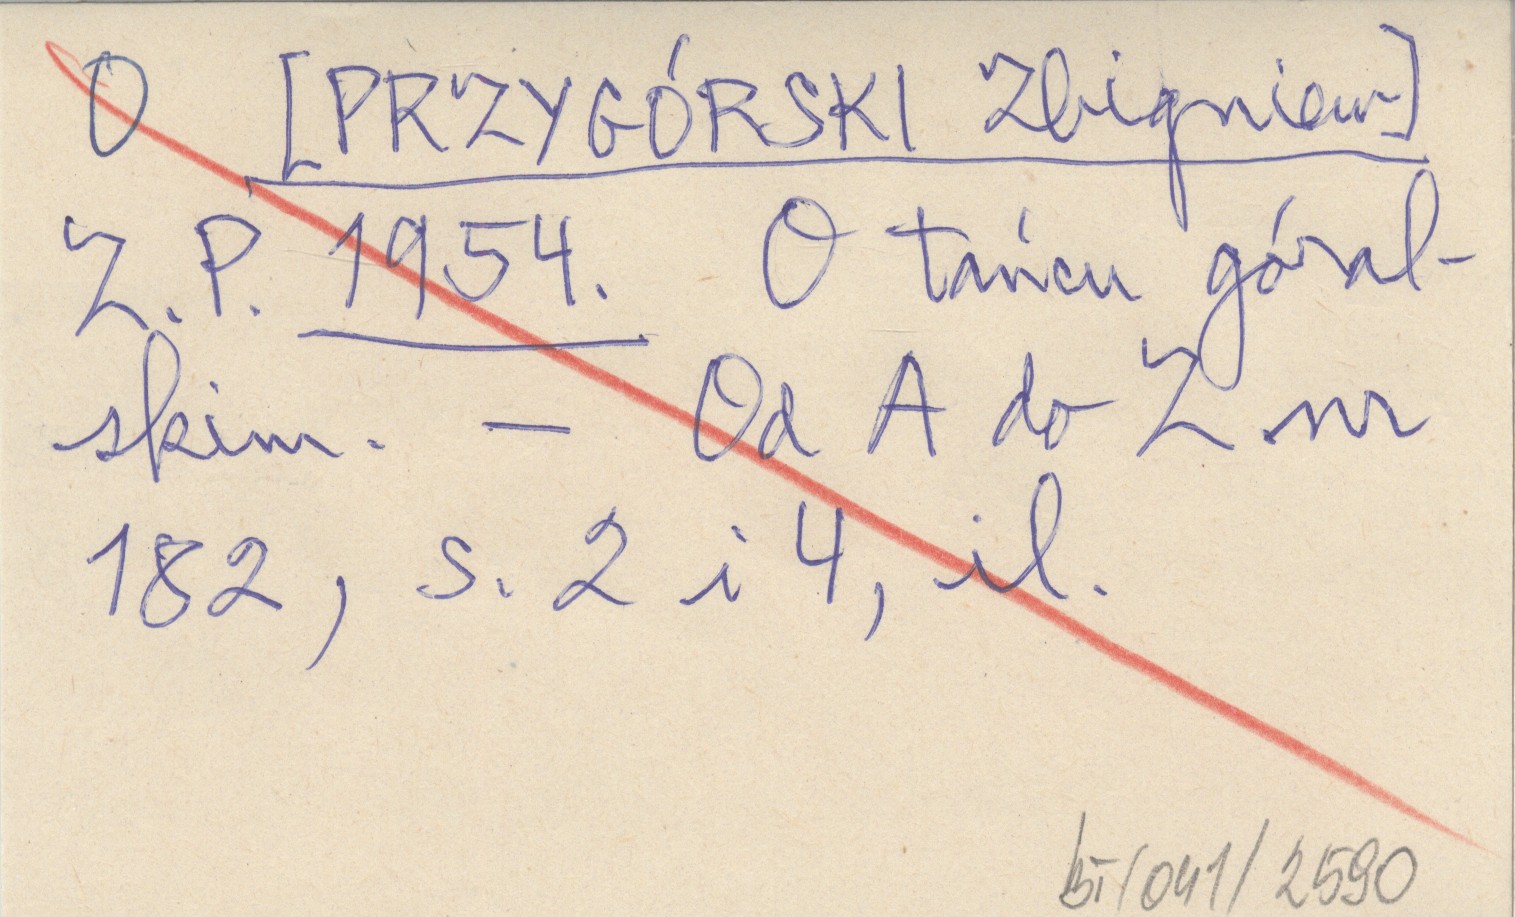 O [PRZYGÓRSKI Zbigniew]
Z.P. 1954. O tańcu góral-
skim. — Od A do Z nr
182, s. 2 i 4, il.
/041/2590